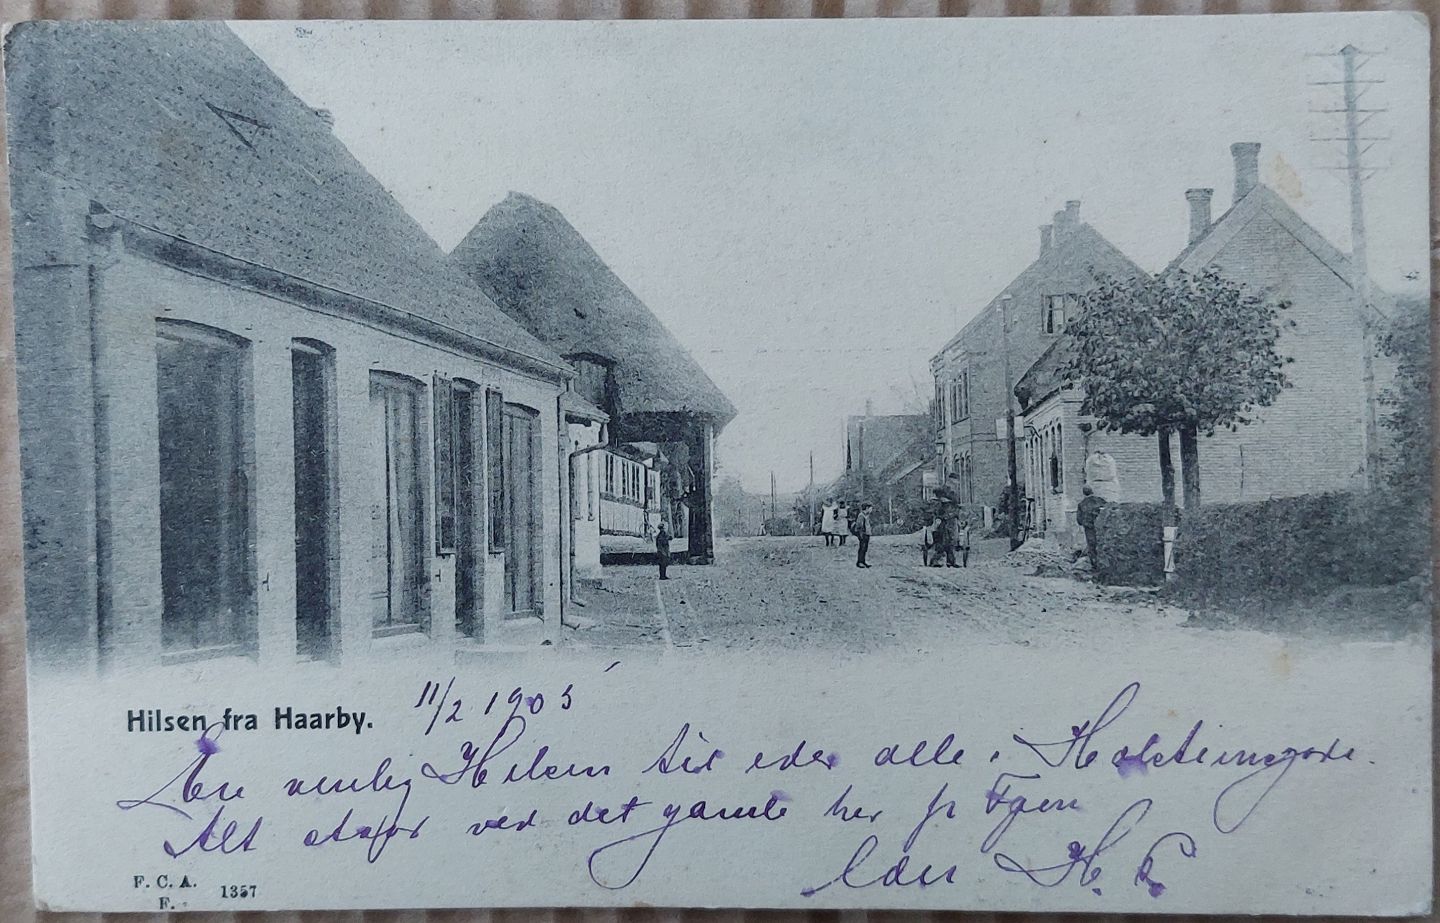 Hilsen fra Haarby. 11/2 1903
En venlig Hilsen til eder alle i
Alt staar ved det gamle her på Fyen
Eder H. P.
F. C. A. 1357
F.